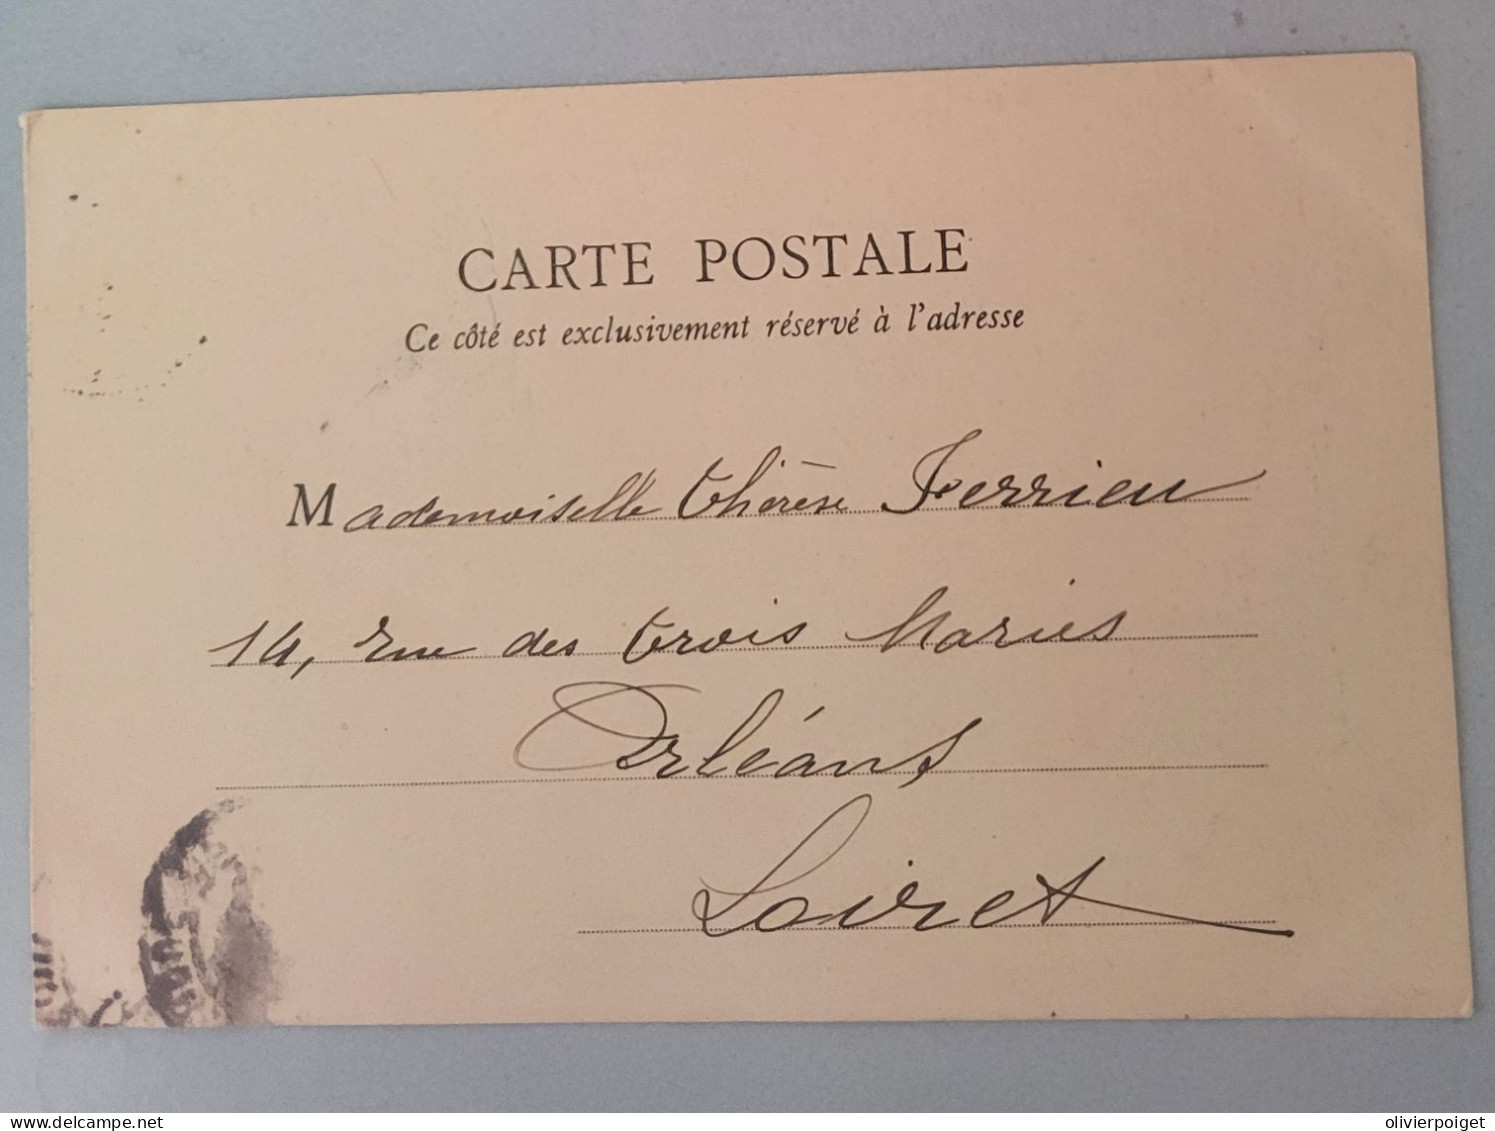 CARTE POSTALE
Ce côté est exclusivement réservé à l'adresse
Mademoiselle Thérèse Ferrieu
14, Rue des Trois Maries
Orléans
Loiret
olivierpoiget